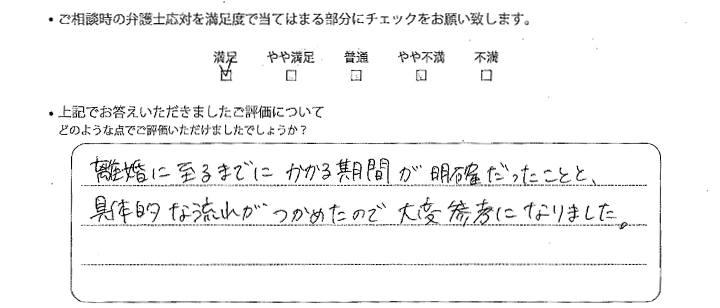 ・ご相談時の弁護士応対を満足度で当てはまる部分にチェックをお願い致します。
満足 やや満足 普通 やや不満 不満
☑ □ □ □ □
・上記でお答えいただきましたご評価について
どのような点でご評価いただけましたでしょうか？
離婚に至るまでにかかる期間が明確だったことと、
具体的な流れがつかめたので大変参考になりました。